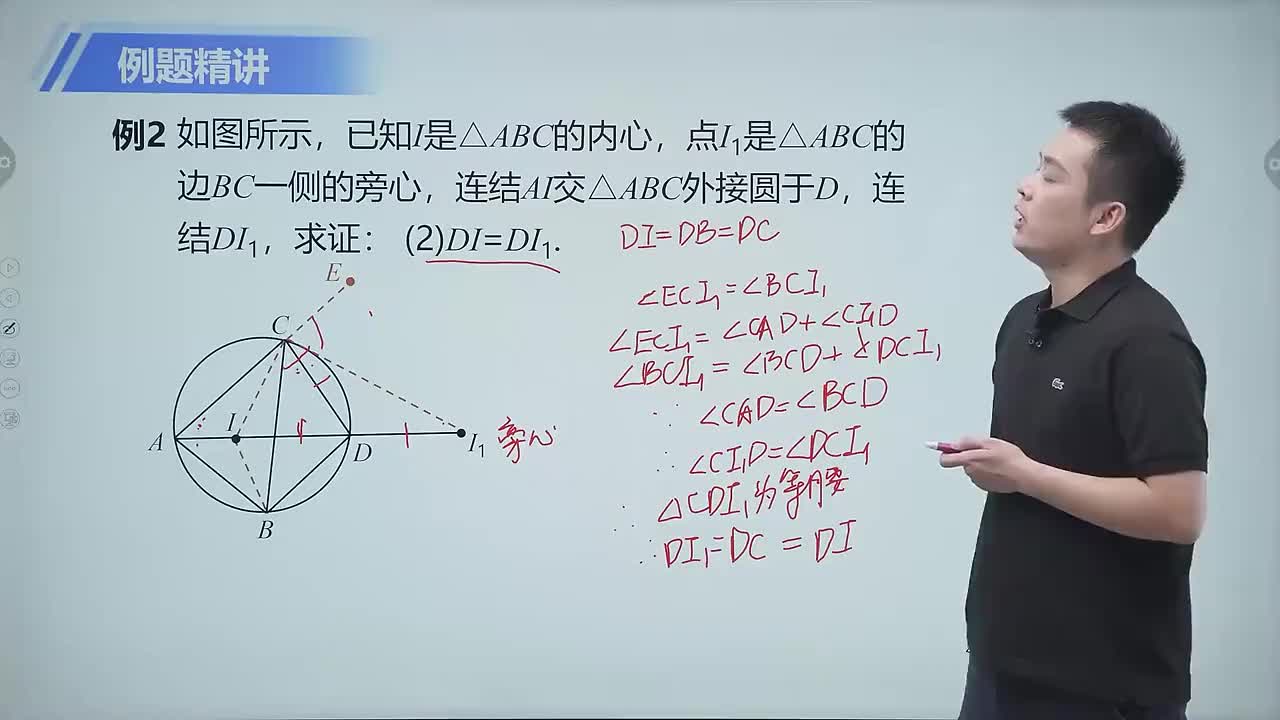 例题精讲
例2 如图所示，已知I是△ABC的内心，点I₁是△ABC的
边BC一侧的旁心，连结AI交△ABC外接圆于D，连
结DI₁，求证：(2)DI=DI₁.
DI=DB=DC
∠ECI₁=∠BCI₁
∠ECI₁=∠CAD+∠CI₁D
∠BCI₁=∠BCD+∠DCI₁
∵ ∠CAD=∠BCD
∴ ∠CI₁D=∠DCI₁
∴ △CDI₁为等腰
∴ DI₁=DC=DI
E
C
I
A
D
I₁ 旁心
B